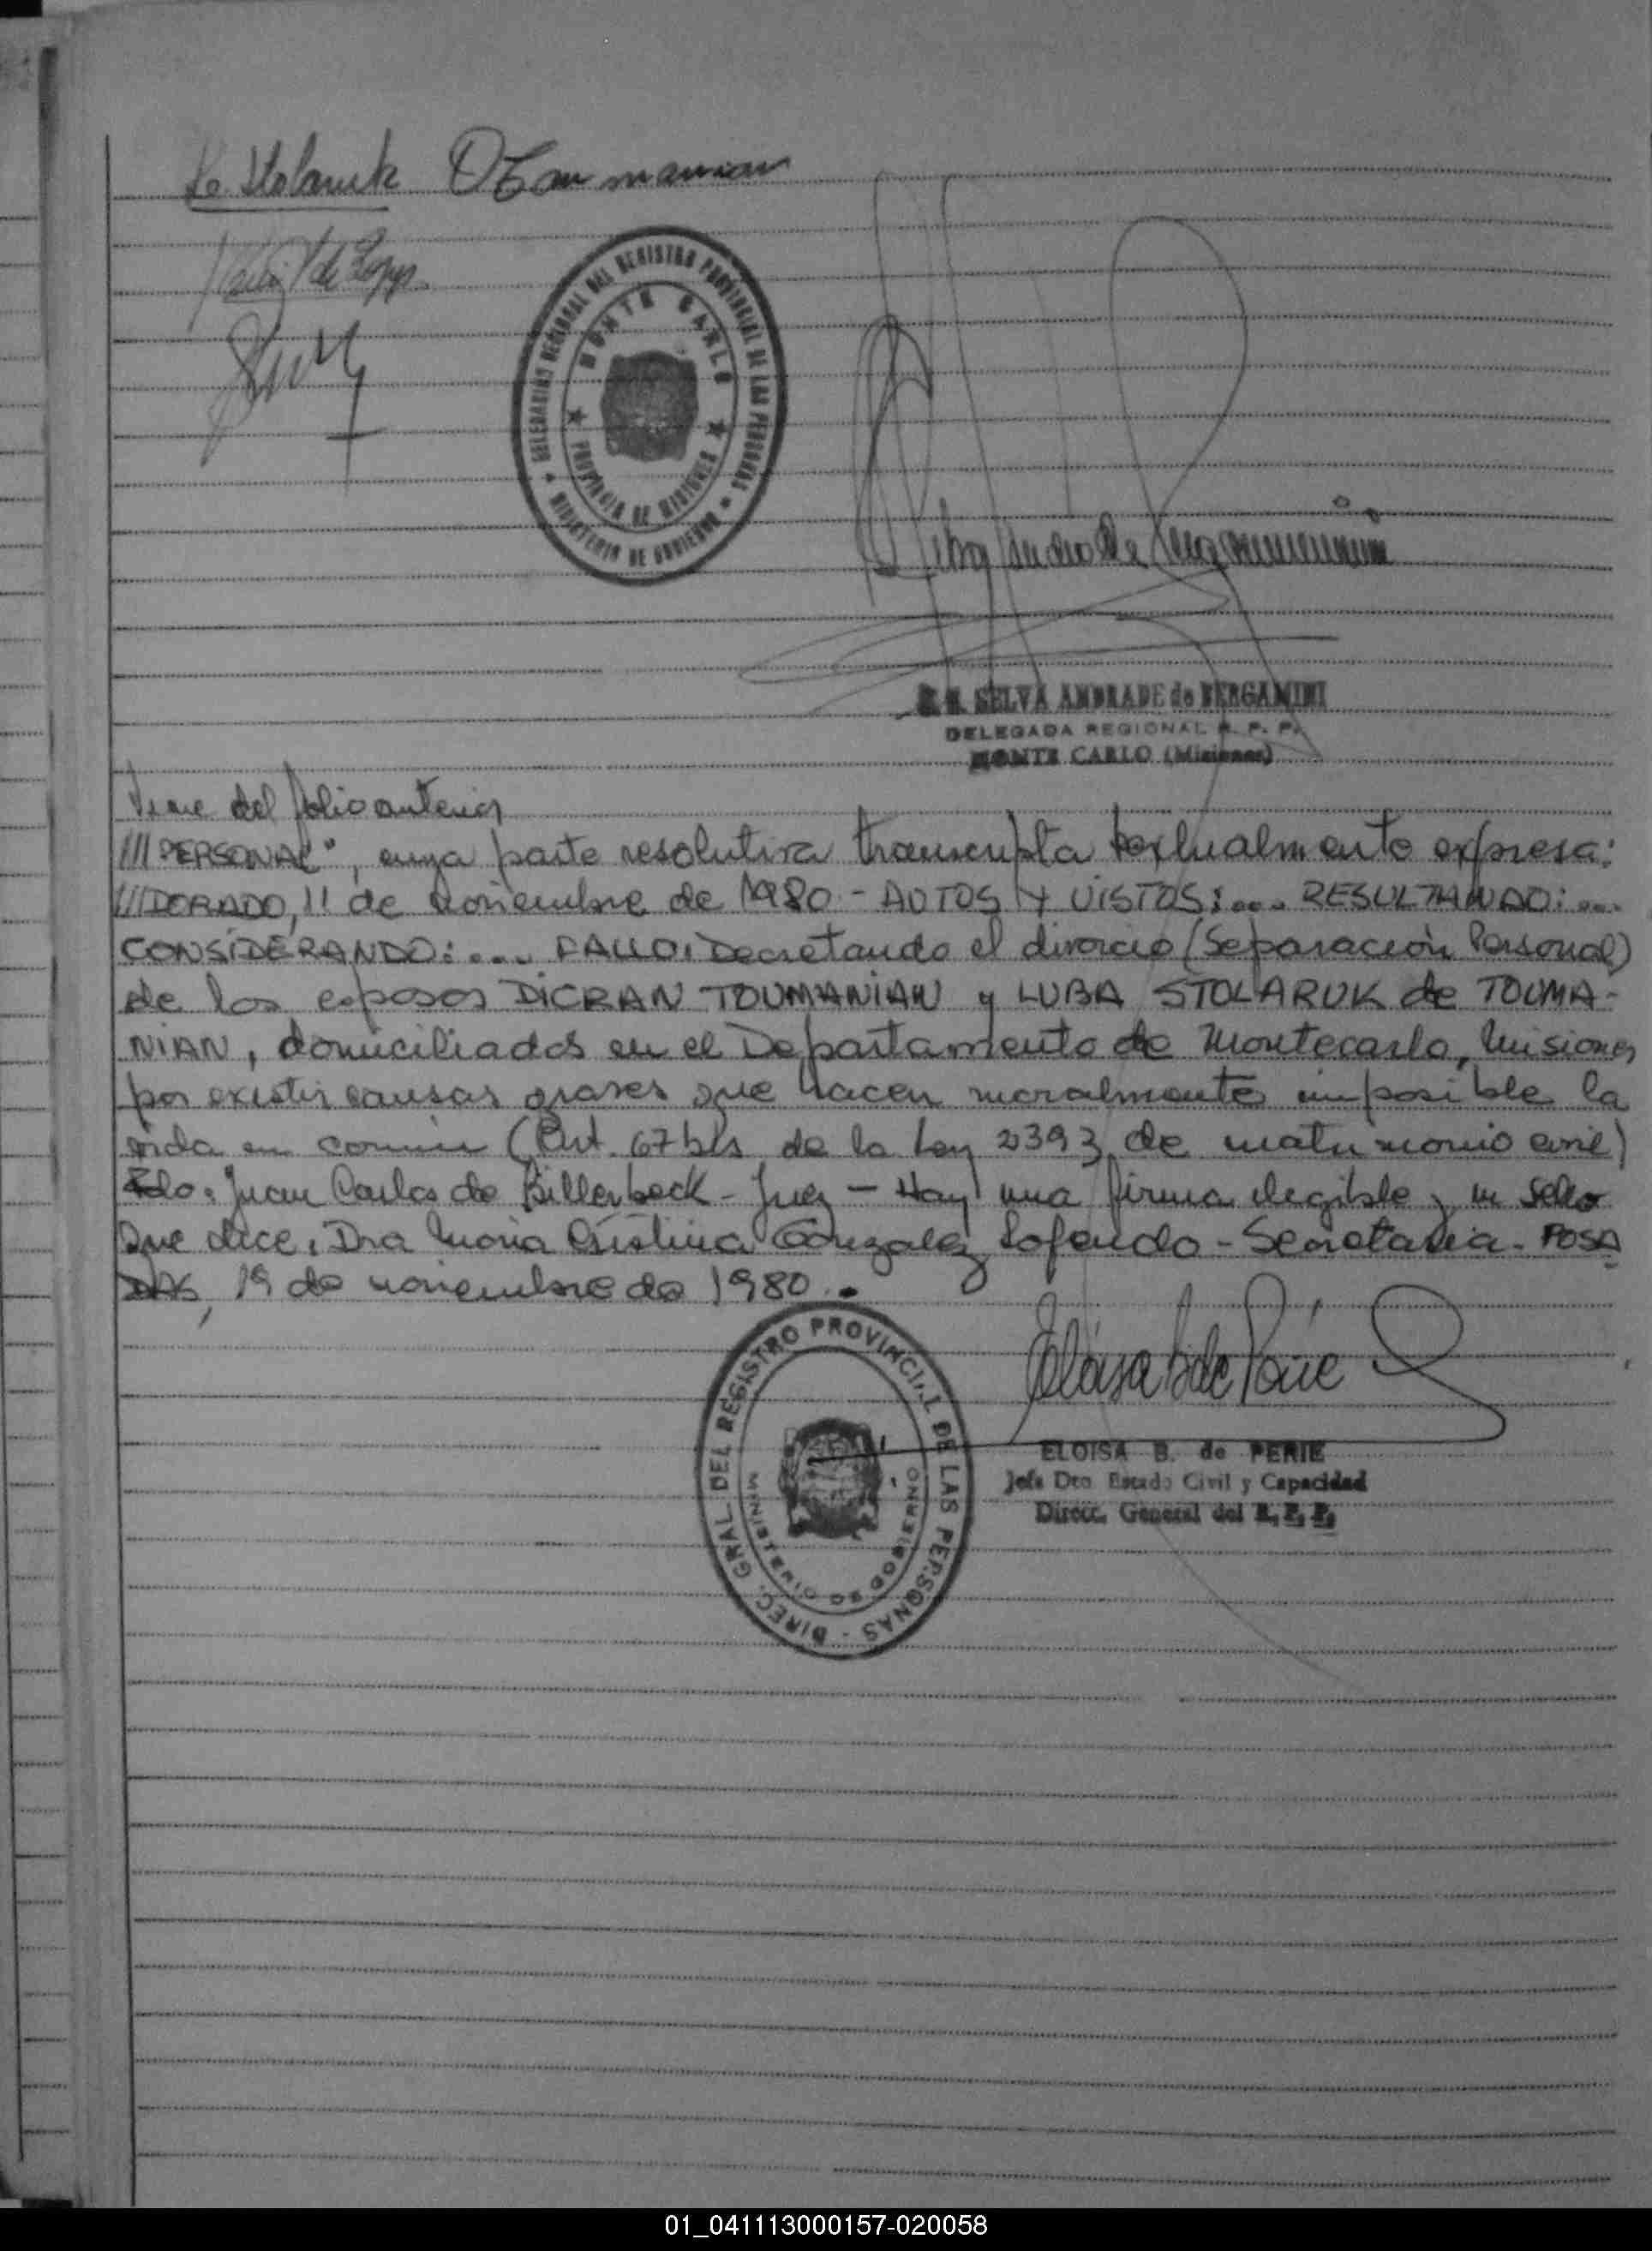 L. Stolaruk DToumanian
de Lopez
DELEGACION REGIONAL DEL REGISTRO PROVINCIAL DE LAS PERSONAS
MINISTERIO DE GOBIERNO
MONTE CARLO
PROVINCIA DE MISIONES
SELVA ANDRADE de BERGAMINI
DELEGADA REGIONAL R. P. P.
MONTE CARLO (Misiones)
Viene del folio anterior
///PERSONAL", cuya parte resolutiva transcripta textualmente expresa:
///DORADO, 11 de noviembre de 1980 - AUTOS Y VISTOS:... RESULTANDO:...
CONSIDERANDO:... FALLO: Decretando el divorcio (Separación Personal)
de los esposos DICRAN TOUMANIAN y LUBA STOLARUK de TOUMA-
NIAN, domiciliados en el Departamento de Montecarlo, Misiones
por existir causas graves que hacen moralmente imposible la
vida en comun (Art. 67 bis de la Ley 2393 de matrimonio civil)
Fdo: Juan Carlos de Billerbeck - Juez - Hay una firma ilegible y un sello
que dice: Dra Maria Cristina Gonzalez - Secretaria - POSA
DAS, 19 de noviembre de 1980.
Eloisa B de Perié
DIREC. GRAL. DEL REGISTRO PROVINCIAL DE LAS PERSONAS -
MINISTERIO DE GOBIERNO
ELOISA B. de PERIE
Jefa Dto. Estado Civil y Capacidad
Direcc. General del R. P. P.
01_041113000157-020058